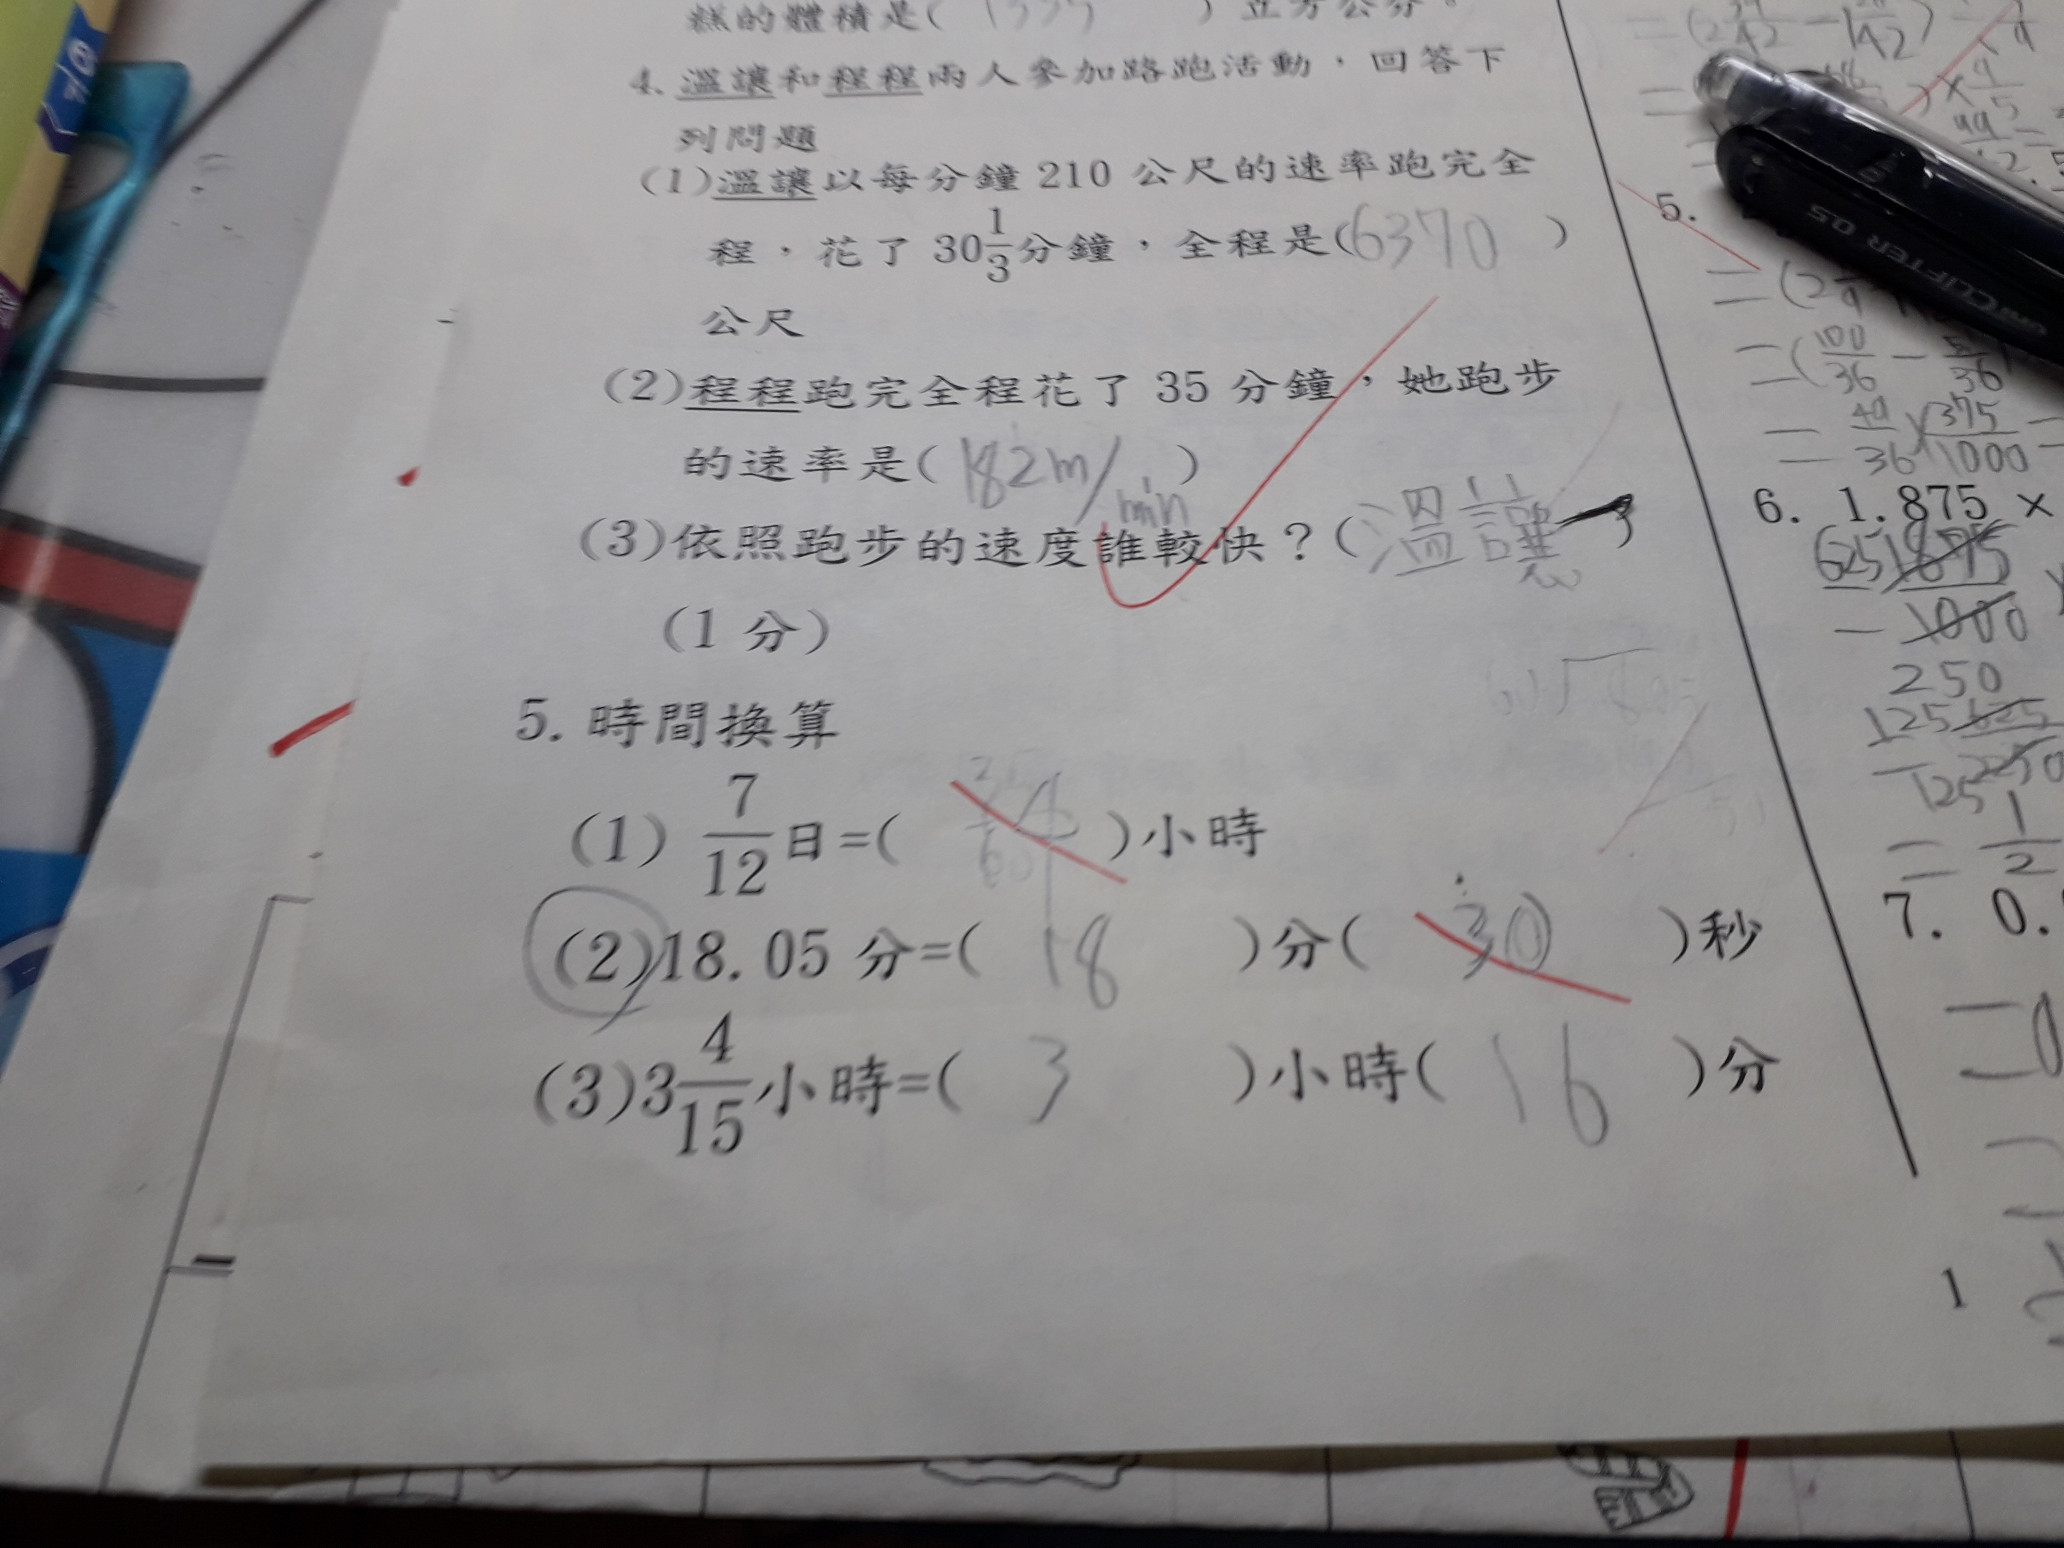 糕的體積是( 1335 )立方公分。
4. 溫讓和程程兩人參加路跑活動，回答下
列問題
(1)溫讓以每分鐘 210 公尺的速率跑完全
程，花了 30 1/3 分鐘，全程是(6370 )
公尺
(2)程程跑完全程花了 35 分鐘，她跑步
的速率是( 182m/min )
(3)依照跑步的速度誰較快？(溫讓)
(1 分)
5. 時間換算
(1) 7/12 日=( )小時
(2)18.05 分=( 18 )分( 30 )秒
(3)3 4/15 小時=( 3 )小時( 16 )分
5.
=(100/36 -
= 49/36 × 375/1000 =
6. 1.875 ×
625 1875
1000
250
125 625
125 250
= 1/2
7. 0.
1
uni CLIFTER 0.5